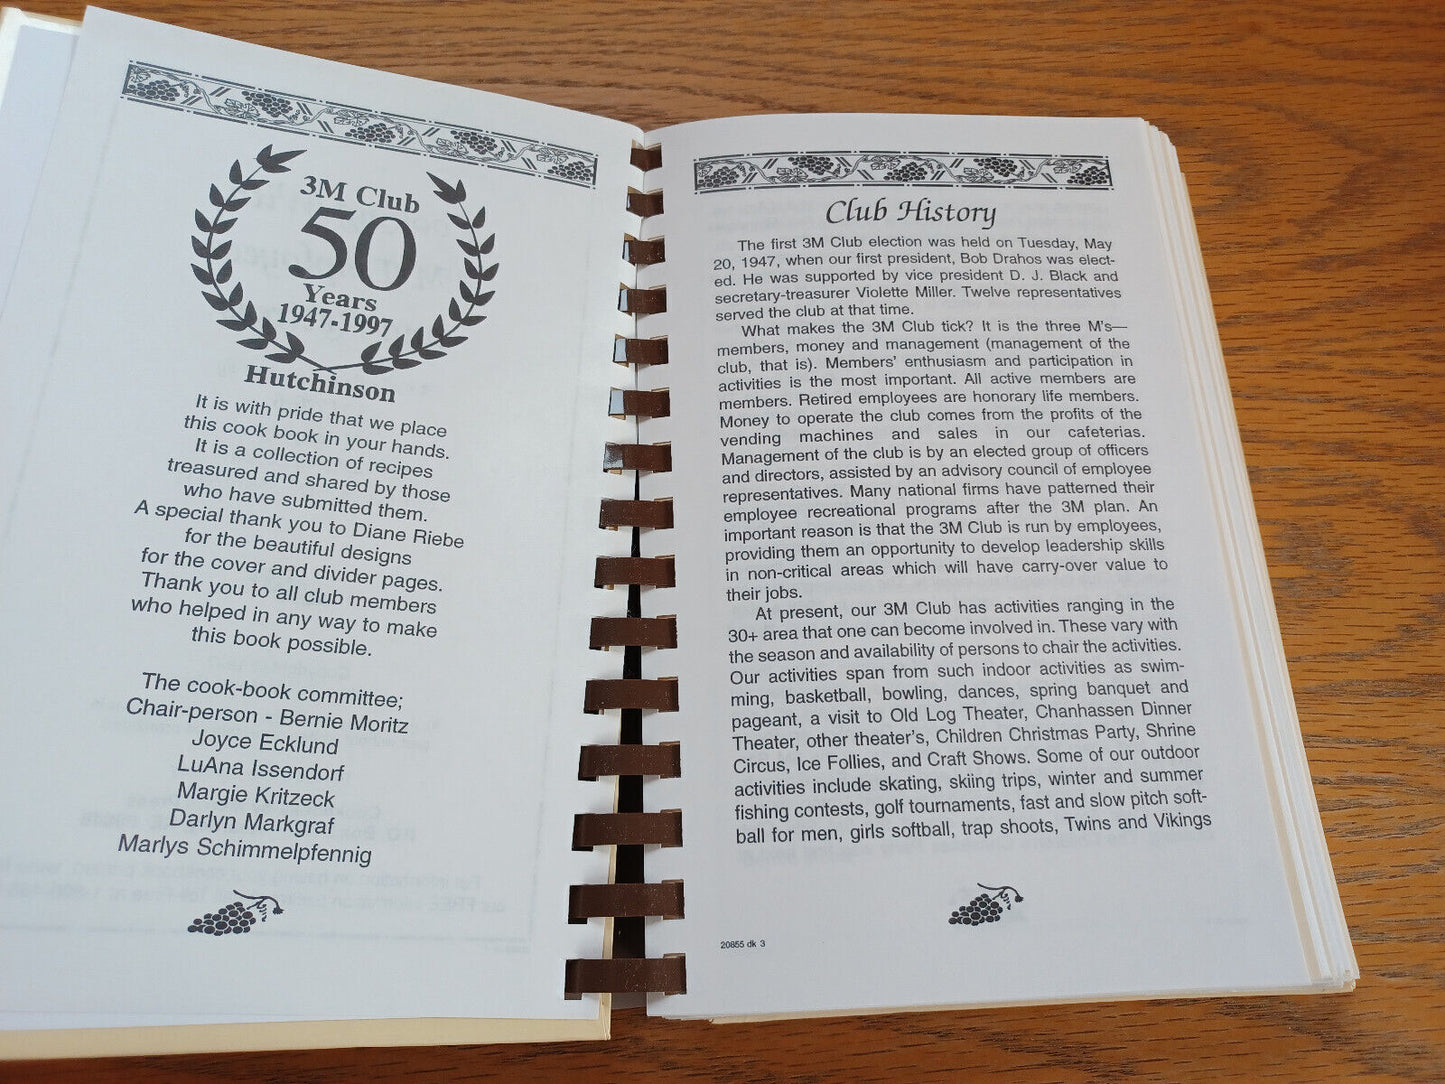 3M Club
50
Years
1947-1997
Hutchinson
It is with pride that we place
this cook book in your hands.
It is a collection of recipes
treasured and shared by those
who have submitted them.
A special thank you to Diane Riebe
for the beautiful designs
for the cover and divider pages.
Thank you to all club members
who helped in any way to make
this book possible.
The cook-book committee;
Chair-person - Bernie Moritz
Joyce Ecklund
LuAna Issendorf
Margie Kritzeck
Darlyn Markgraf
Marlys Schimmelpfennig
Club History
The first 3M Club election was held on Tuesday, May
20, 1947, when our first president, Bob Drahos was elect-
ed. He was supported by vice president D. J. Black and
secretary-treasurer Violette Miller. Twelve representatives
served the club at that time.
What makes the 3M Club tick? It is the three M's—
members, money and management (management of the
club, that is). Members' enthusiasm and participation in
activities is the most important. All active members are
members. Retired employees are honorary life members.
Money to operate the club comes from the profits of the
vending machines and sales in our cafeterias.
Management of the club is by an elected group of officers
and directors, assisted by an advisory council of employee
representatives. Many national firms have patterned their
employee recreational programs after the 3M plan. An
important reason is that the 3M Club is run by employees,
providing them an opportunity to develop leadership skills
in non-critical areas which will have carry-over value to
their jobs.
At present, our 3M Club has activities ranging in the
30+ area that one can become involved in. These vary with
the season and availability of persons to chair the activities.
Our activities span from such indoor activities as swim-
ming, basketball, bowling, dances, spring banquet and
pageant, a visit to Old Log Theater, Chanhassen Dinner
Theater, other theater's, Children Christmas Party, Shrine
Circus, Ice Follies, and Craft Shows. Some of our outdoor
activities include skating, skiing trips, winter and summer
fishing contests, golf tournaments, fast and slow pitch soft-
ball for men, girls softball, trap shoots, Twins and Vikings
20855 dk 3